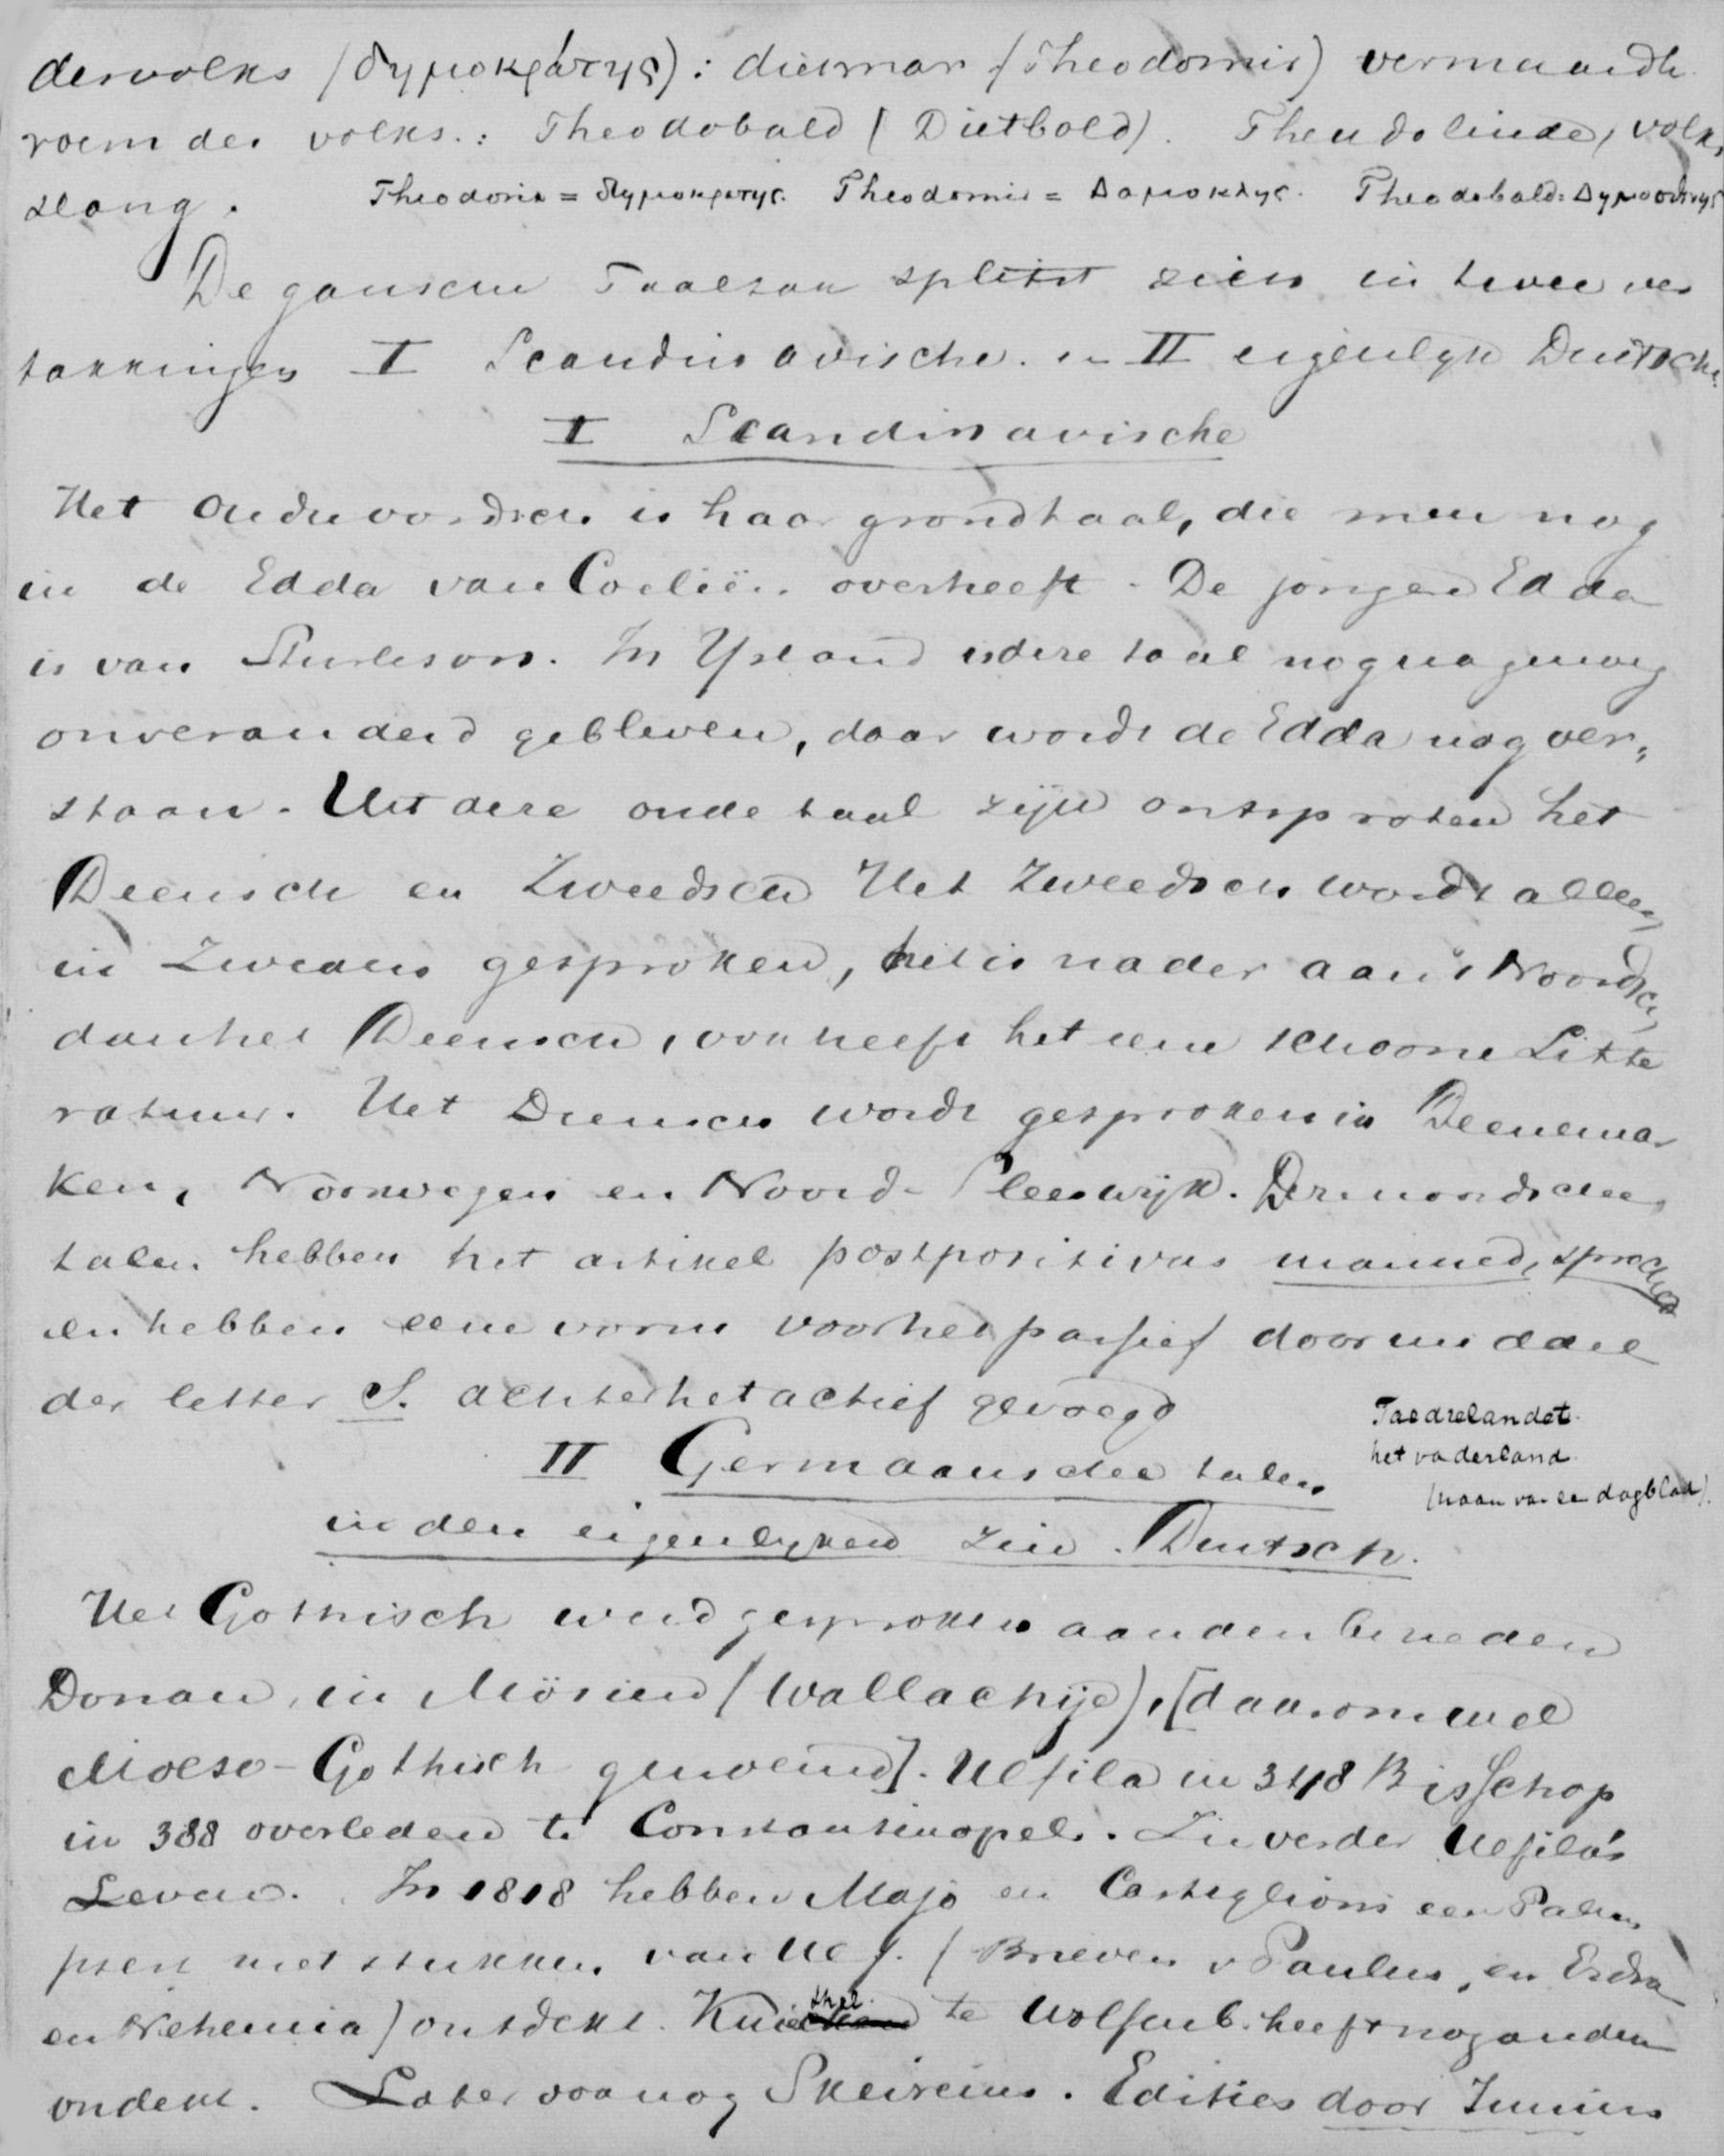 des volks (δημοκράτης): dietmar (Theodomir) vermaarдh
roem des volks.: Theodobald (Dietbold). Theudelinde, volks,
slang. Theodoric = δημοκρατης. Theodomir = Δαμοκλης. Theodobald = Δημοσθενης
De gansche Taaltak splitst zich in twee ver
takkingen I Scandinavische en II eigenlyk Duitsche.
I Scandinavische
Het Oudnoordsch is haar grondtaal, die men nog
in de Edda van overheeft. De jongere Edda
is van Sturleson. In Ysland is deze taal nog nagenoeg
onveranderd gebleven, daar wordt de Edda nog ver„
staan. Uit deze oude taal zijn ontsproten het
Deensch en Zweedsch Het Zweedsch wordt alleen
in Zweden gesproken, het is nader aan 't Noordsch,
dan het Deensch, ook heeft het eene schoone Litte
ratuur. Het Deensch wordt gesproken in Deenemar
ken, Noorwegen en Noord-Sleeswijk. De noordsche
talen hebben het artikel postpositivus manned, sproched
en hebben eene vorm voor het passief door middel
der letter S. achter het actief gevoegd
Faedrelandet.
het vaderland.
(naam van een dagblad).
II Germaansche talen
in den eigenlyken zin Deutsch.
Het Gothisch werd gesproken aan den beneden
Donau, in Mösien (Wallachije), [daarom wel
Moeso-Gothisch genoemd]. Ulfila in 348 Bisschop
in 388 overleden te Constantinopel. Zie verder Ulfila's
Leven. In 1818 hebben Majo en Castiglioni een Palim
psest met stukken van Ulf. (Brieven v Paulus, en Esdra
en Nehemia) ontdekt. Knittel te Wolfenb. heeft nog andere
ondekt. Later ook nog Skeireins. Edities door Junius